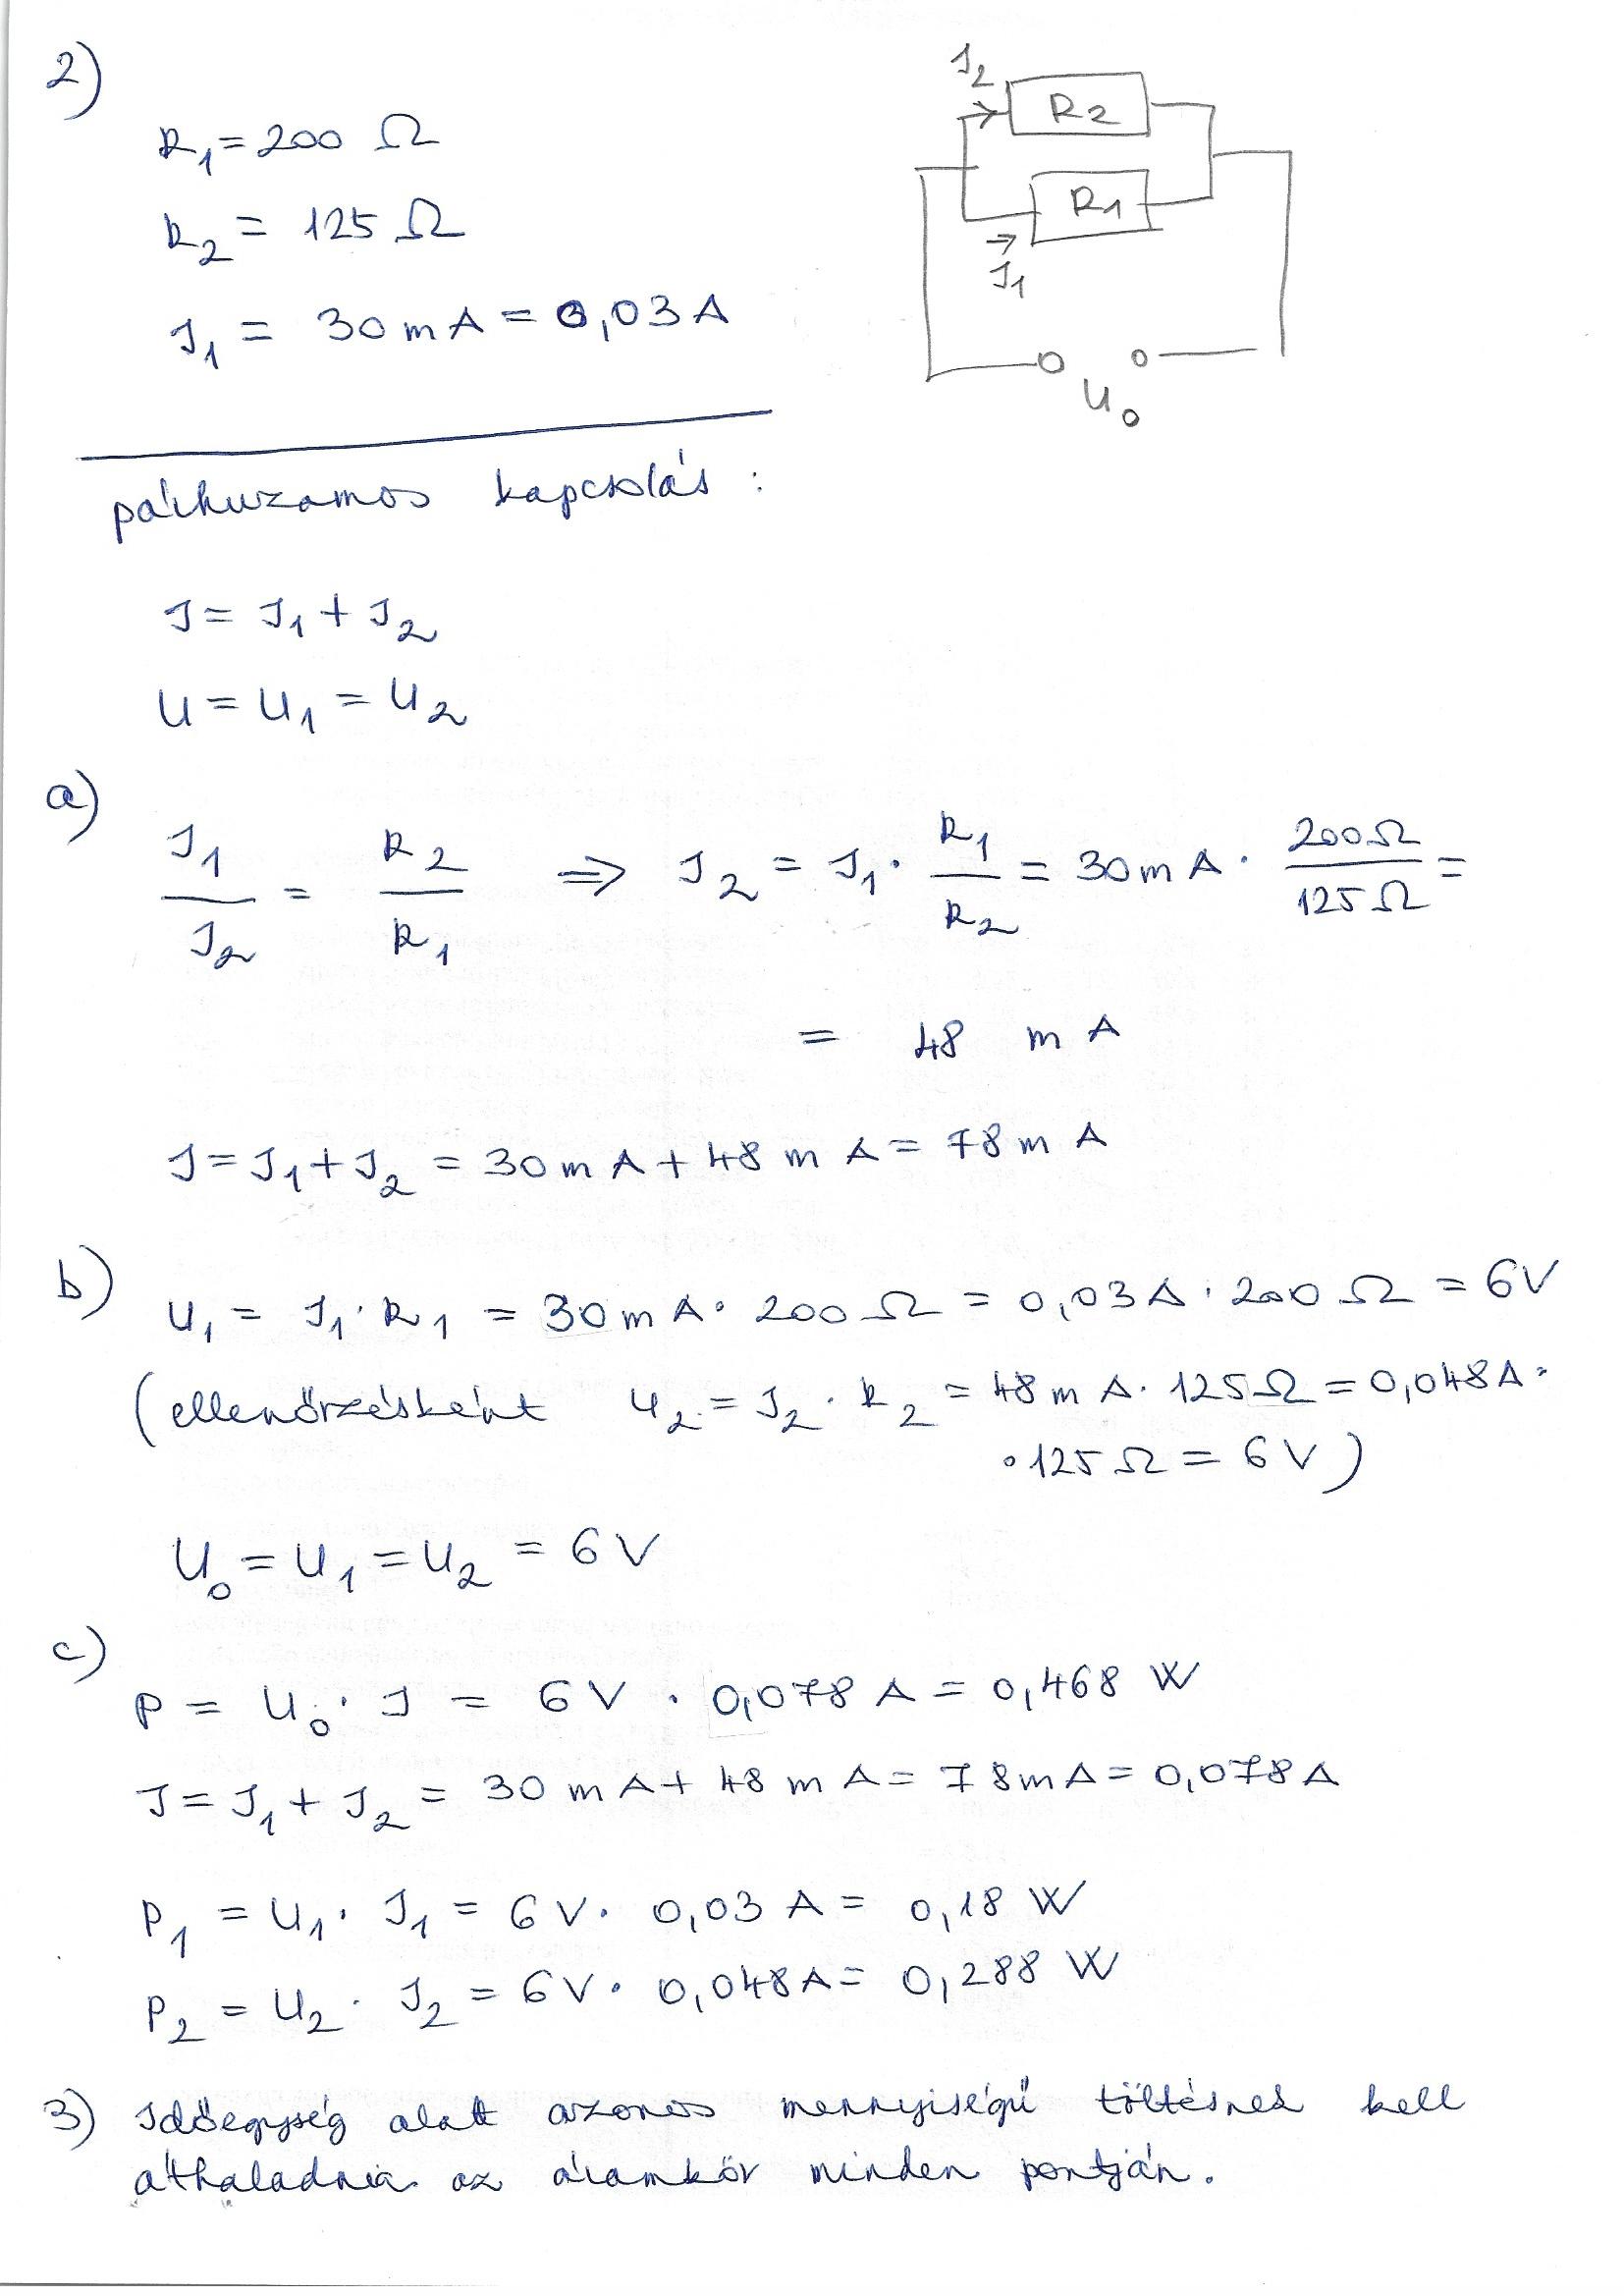 2)
R₁ = 200 Ω
R₂ = 125 Ω
I₁ = 30 mA = 0,03 A
I₂
R2
R1
I₁
U₀
párhuzamos kapcsolás :
I = I₁ + I₂
U = U₁ = U₂
a)
I₁/I₂ = R₂/R₁ ⇒ I₂ = I₁ · R₁/R₂ = 30 mA · 200Ω/125Ω =
= 48 mA
I = I₁ + I₂ = 30 mA + 48 mA = 78 mA
b) U₁ = I₁ · R₁ = 30 mA · 200 Ω = 0,03A · 200 Ω = 6V
(ellenőrzésként U₂ = I₂ · R₂ = 48 mA · 125Ω = 0,048A ·
· 125 Ω = 6 V)
U₀ = U₁ = U₂ = 6 V
c)
P = U₀ · I = 6 V · 0,078 A = 0,468 W
I = I₁ + I₂ = 30 mA + 48 mA = 78mA = 0,078 A
P₁ = U₁ · I₁ = 6 V · 0,03 A = 0,18 W
P₂ = U₂ · I₂ = 6 V · 0,048A = 0,288 W
3) Időegység alatt azonos mennyiségű töltésnek kell
áthaladnia az áramkör minden pontján.